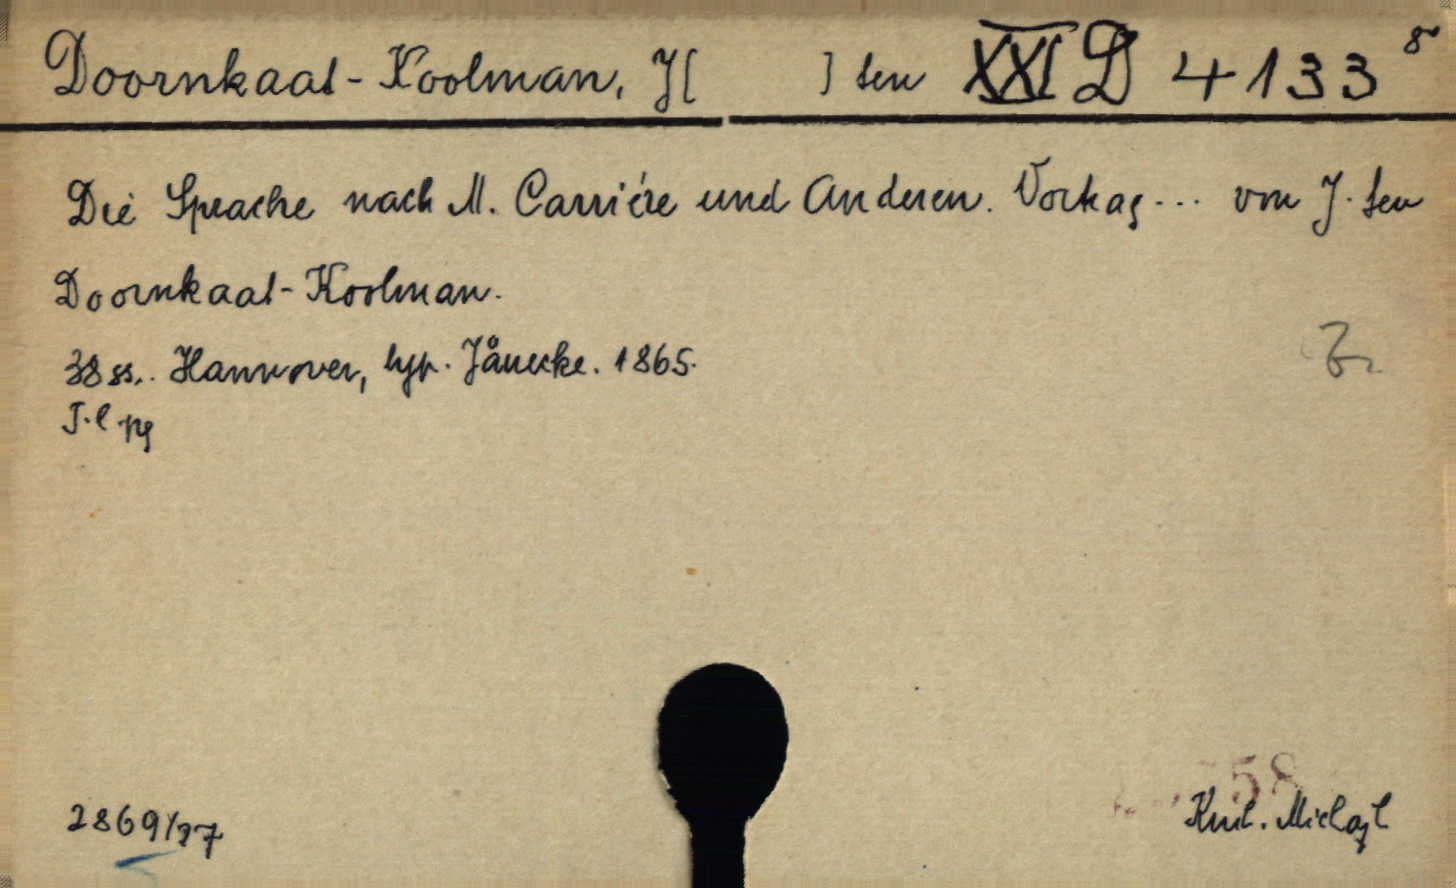 Doornkaat-Koolman, J[ ] ten XXI D 4133 8°
Die Sprache nach M. Carriére und Anderen. Vortrag... von J. ten
Doornkaat-Koolman.
38 ss. Hannover, typ. Jånecke. 1865.
T. l pg
58
2869/27